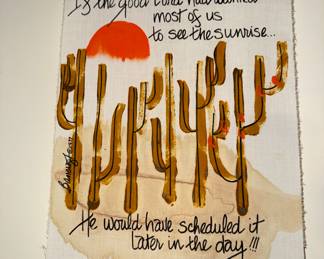 If the good Lord had wanted
most of us
to see the sunrise...
He would have scheduled it
later in the day!!!